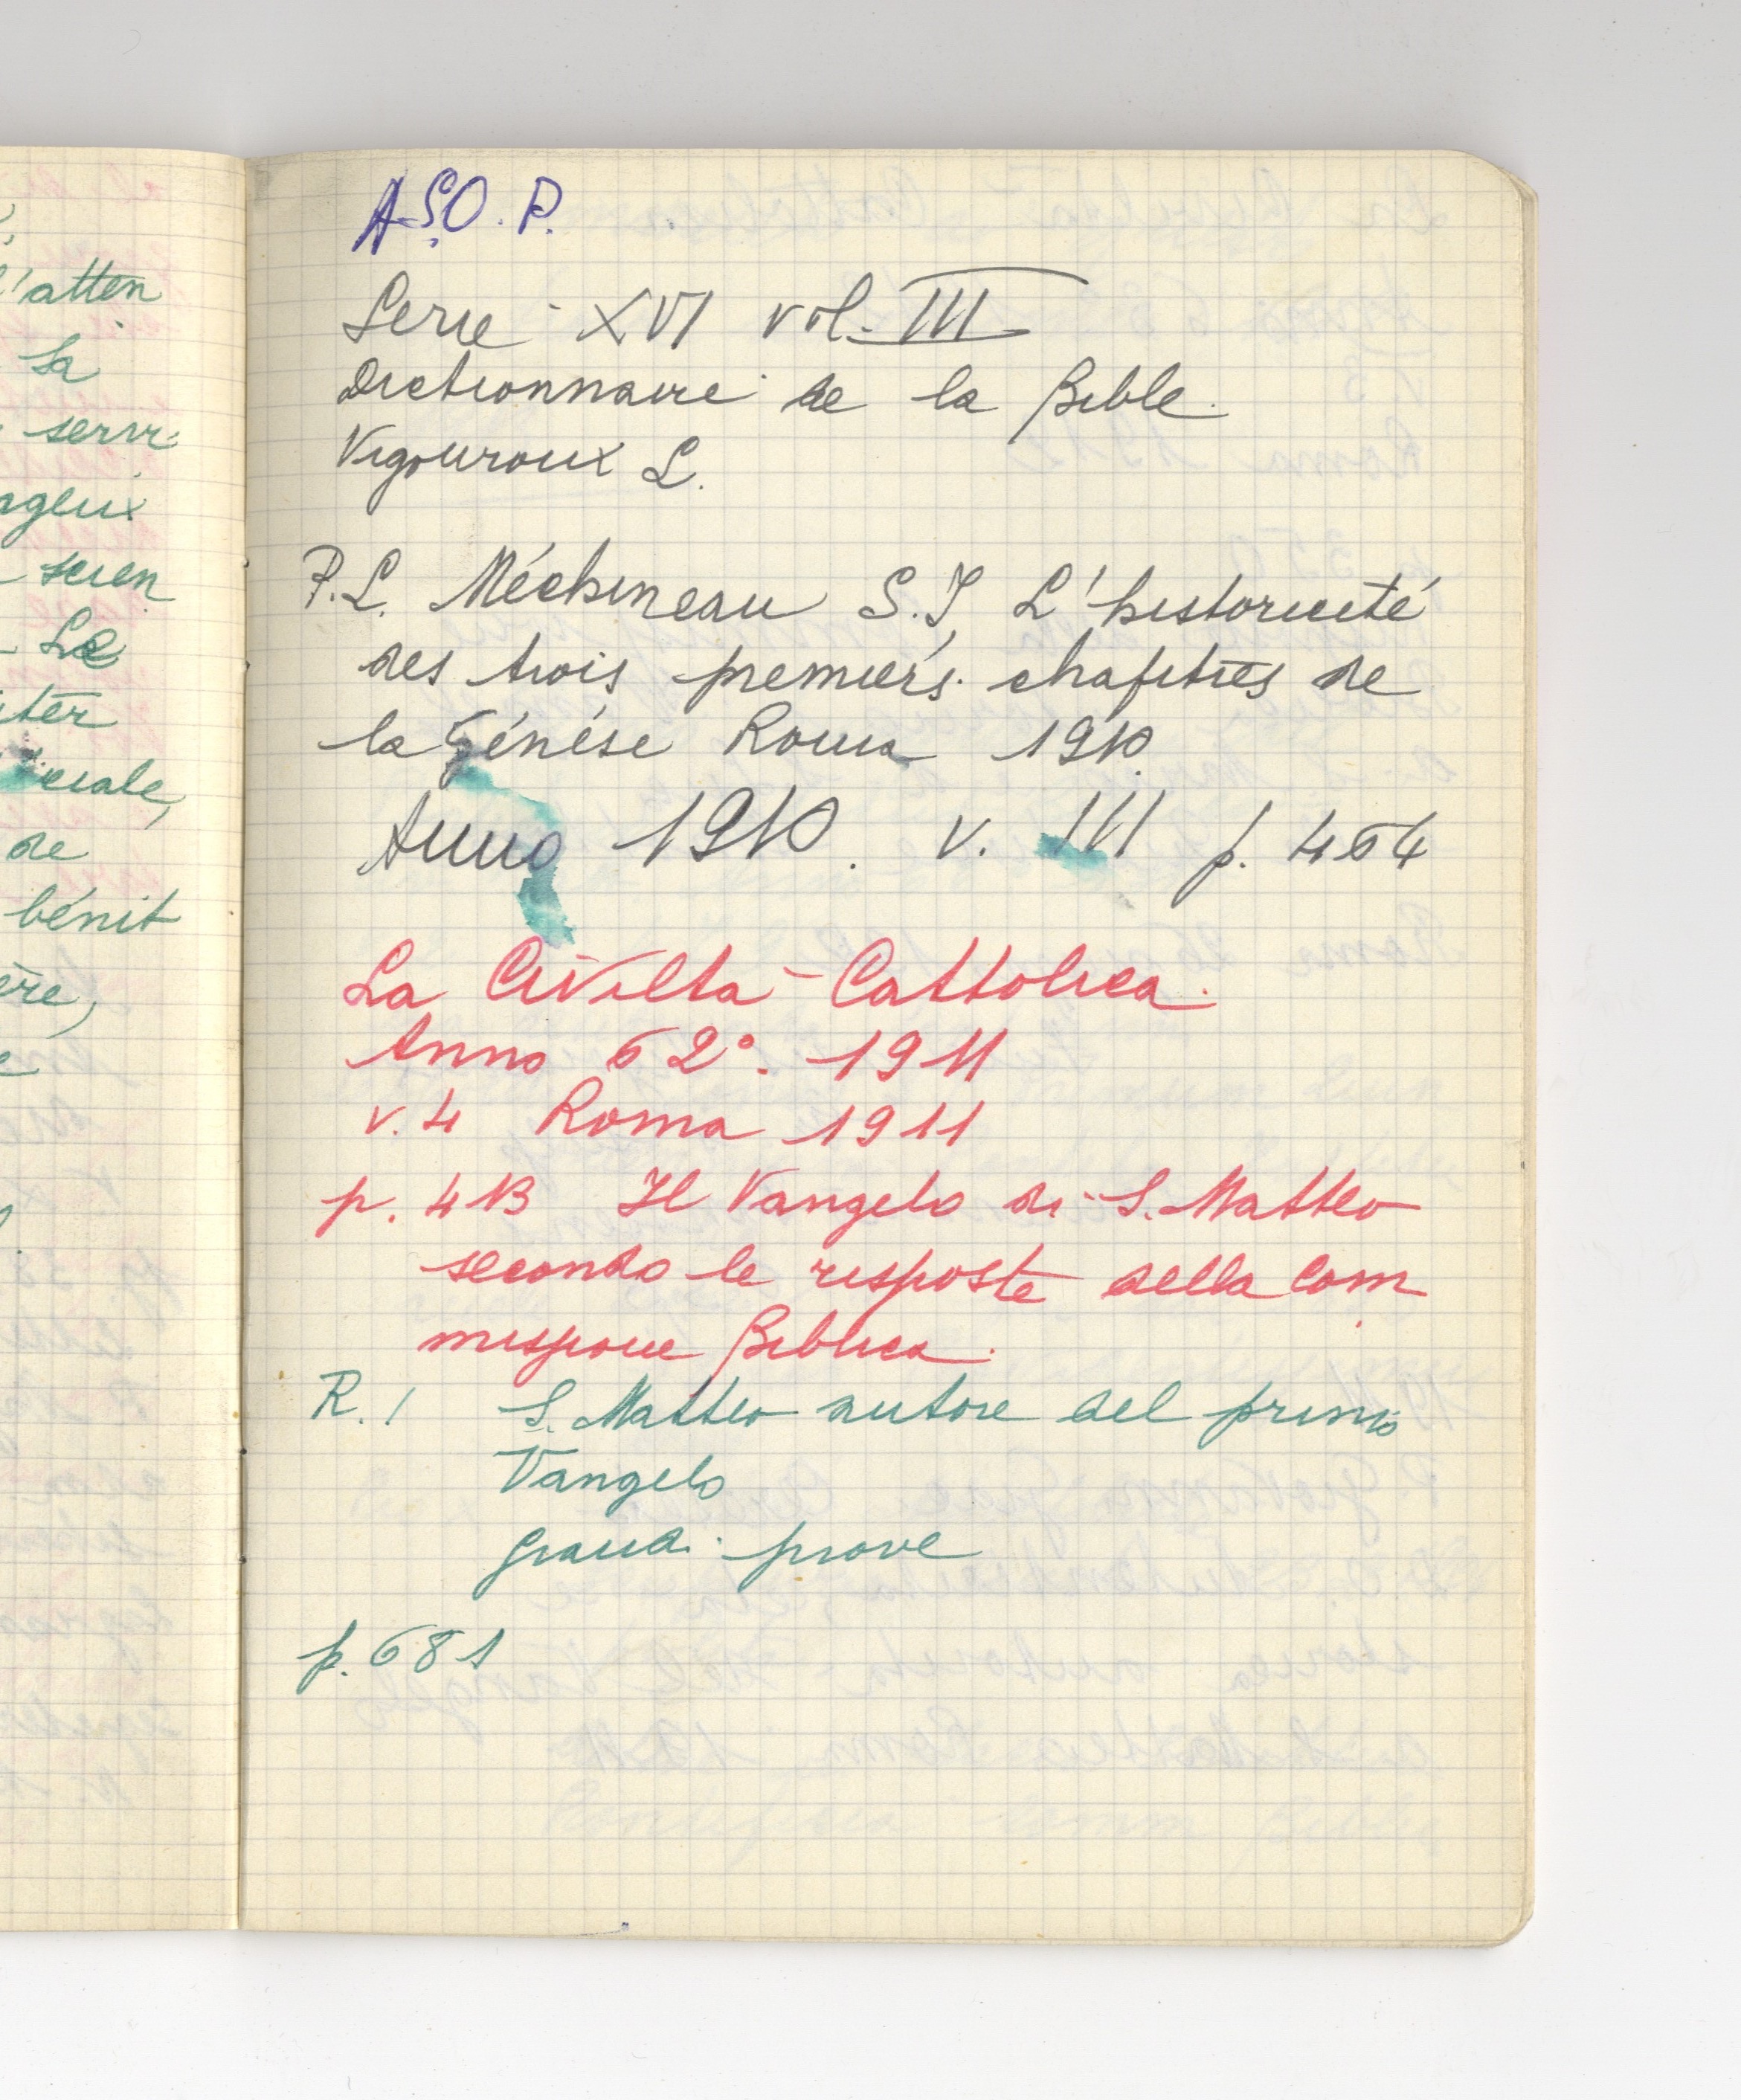 'atten
la
servi
ngeux
scien
Le
ciale,
de
bénit
ère,
A.S.O.P.
Serie XVI vol. III
Dictionnaire de la Bible
Vigouroux L.
P.L. Méchineau S.J. L'historicité
des trois premiers chapitres de
la Génése Roma 1910.
Anno 1910. v. III p. 464
La Civiltà Cattolica.
Anno 62°. 1911
v. 4 Roma 1911
p. 413 Il Vangelo di S. Matteo
secondo le risposte della Com
missione Biblica.
R. 1 S. Matteo autore del primo
Vangelo
prove
p. 681